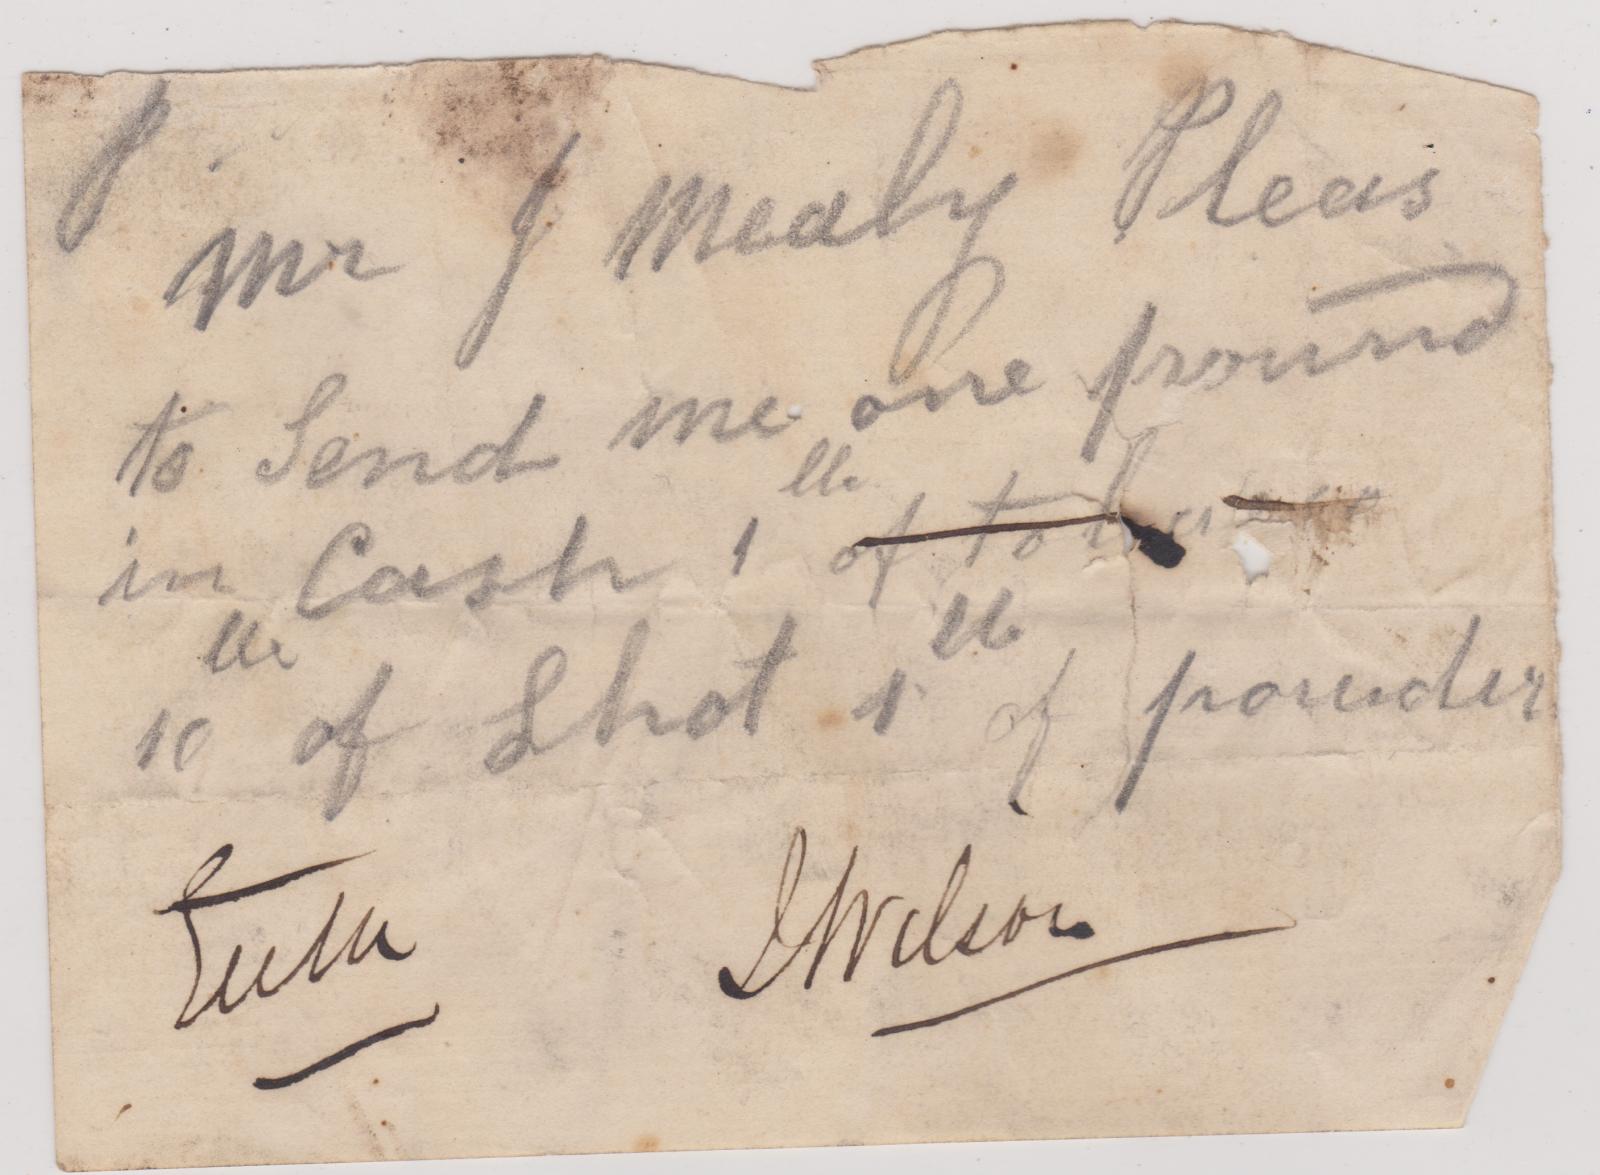 Mr J Mealy Pleas
to Send me one pound
in Cash 1 lb of tobacco
10 lb of Shot 1 lb of powder
J Wilson